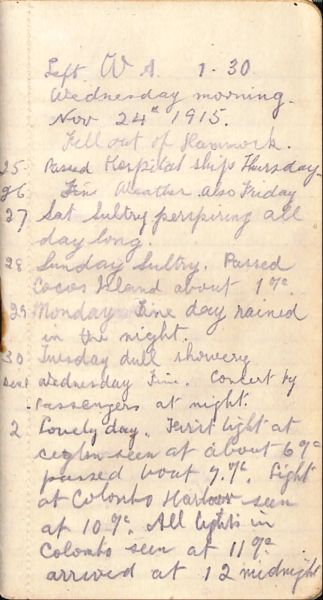 Left W A. 1-30.
Wednesday morning.
Nov 24th 1915.
Fell out of Hammock.
25 Passed Hospital ship Thursday
26 Fine Weather also Friday
27 Sat Sultry perspiring all
day long.
28 Sunday Sultry. Passed
Cocos Island about 1
29 Monday Fine day rained
in the night.
30 Tuesday dull showery
Dec 1 Wednesday Fine. Concert by
Passengers at night.
2 Lovely day. light at
ceylon seen at about 6
passed bout 7. Light
at Colombo Harbour seen
at 10 All lights in
Colombo seen at 11
arrived at 12 midnight